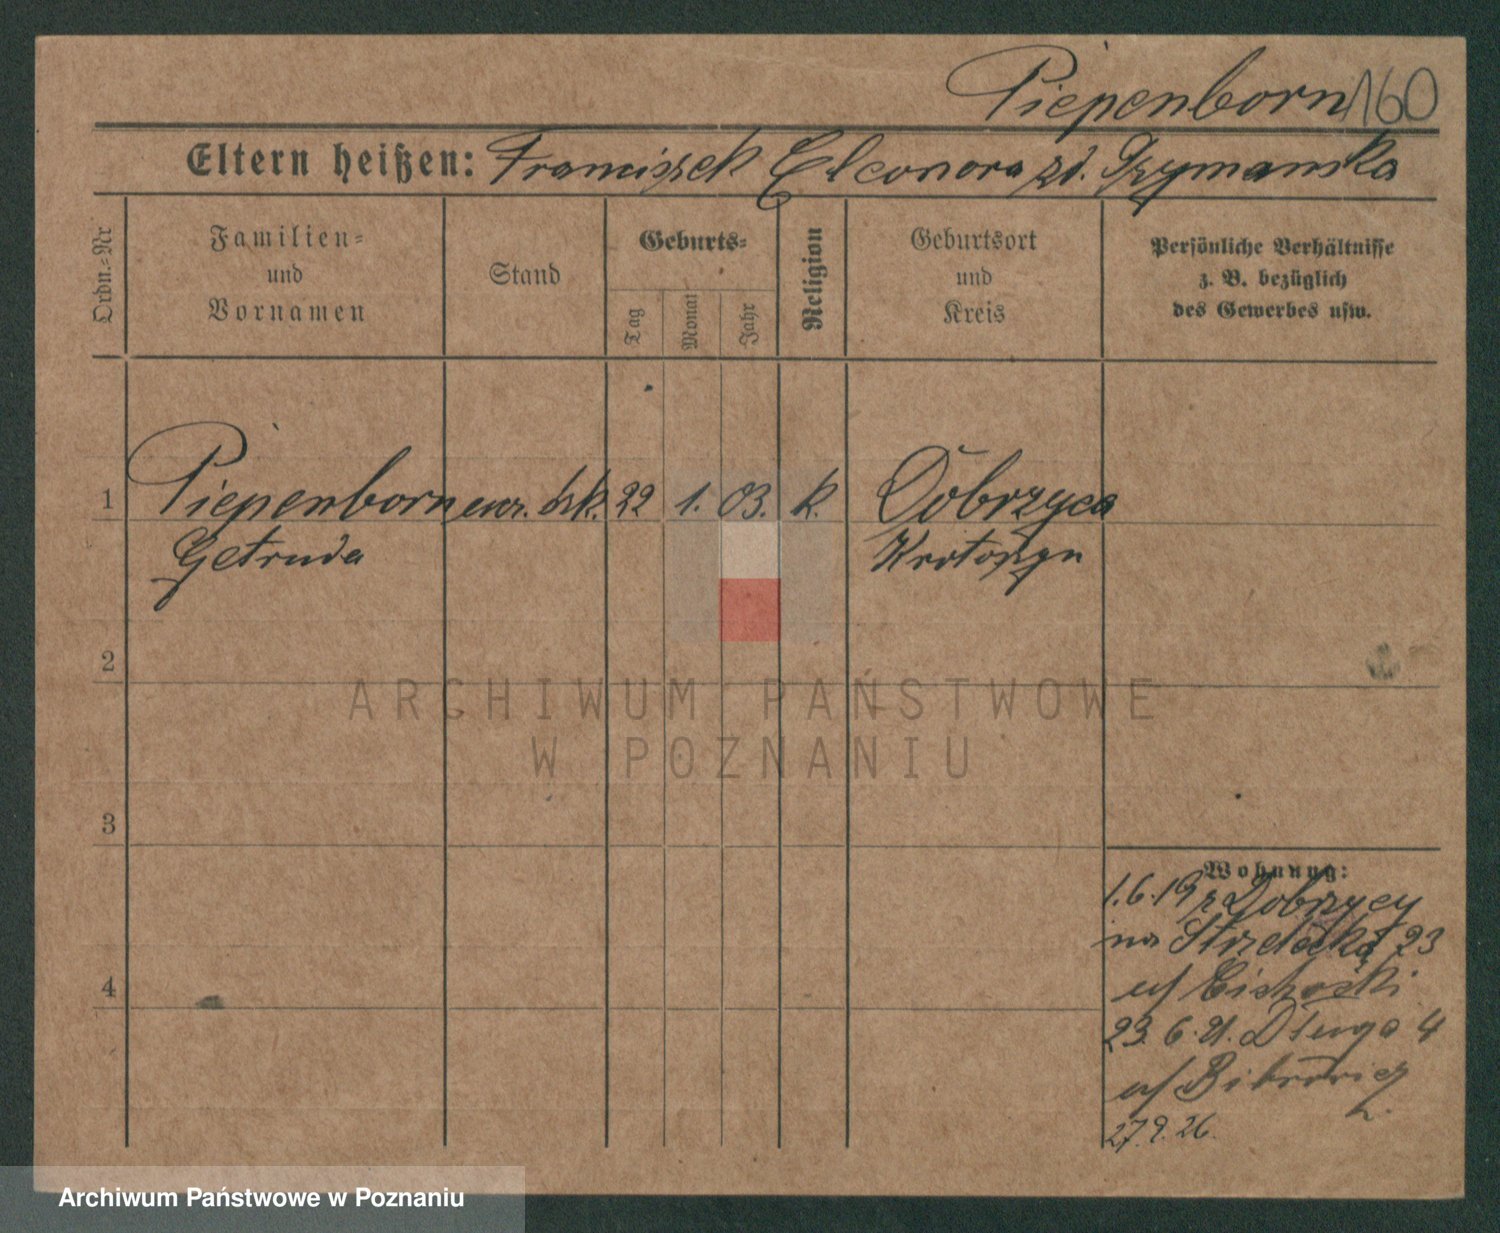 Piepenborn 160
Eltern heißen: Franciszek Eleonora zd. Szymanska
Ordn.-Nr
Familien- und Vornamen
Stand
Geburts-
Tag
Monat
Jahr
Religion
Geburtsort und Kreis
Persönliche Verhältnisse
z. B. bezüglich
des Gewerbes usw.
1 Piepenborn 22 1. 03. k. Dobrzyca
Getruda Krotoszyn
2
3
4
Wohnung:
1.6.19 z Dobrzycy
na Strzelecką 23
u/ Cichocki
23.6.21. Długa 4
u/
27.9.26.
ARCHIWUM PAŃSTWOWE
W POZNANIU
Archiwum Państwowe w Poznaniu